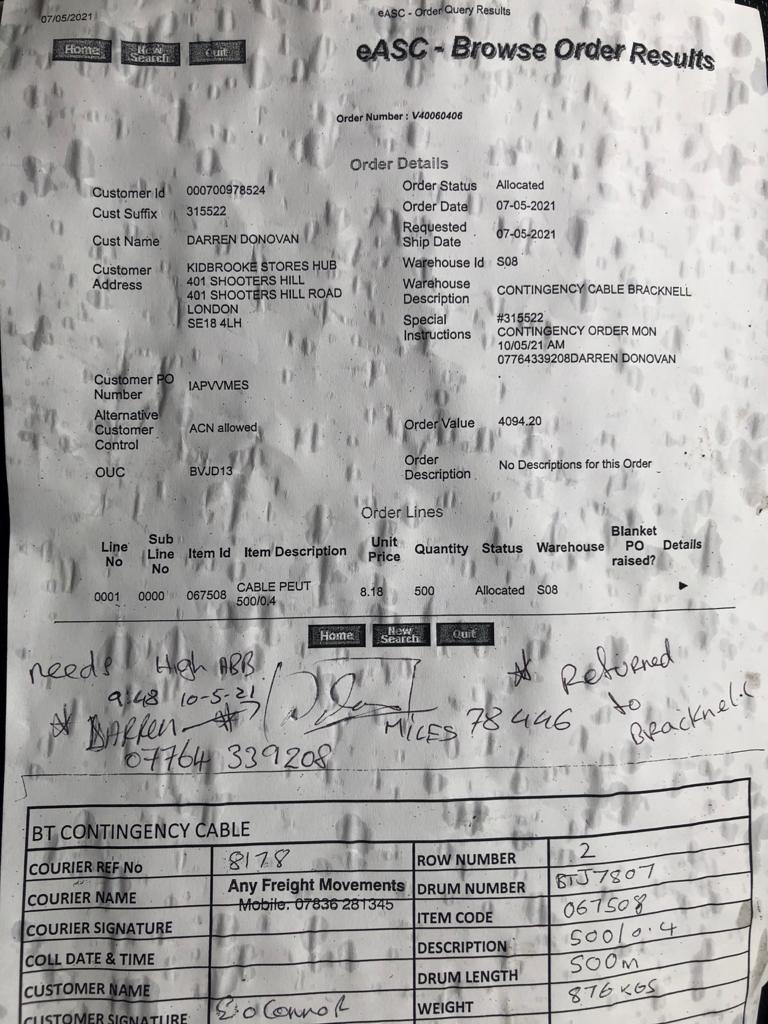 07/05/2021
eASC - Order Query Results
Home New Search Quit
eASC - Browse Order Results
Order Number : V40060406
Order Details
Customer Id 000700978524
Order Status Allocated
Cust Suffix 315522
Order Date 07-05-2021
Requested Ship Date 07-05-2021
Cust Name DARREN DONOVAN
Customer Address KIDBROOKE STORES HUB
401 SHOOTERS HILL
401 SHOOTERS HILL ROAD
LONDON
SE18 4LH
Warehouse Id S08
Warehouse Description CONTINGENCY CABLE BRACKNELL
Special Instructions #315522
CONTINGENCY ORDER MON
10/05/21 AM
07764339208DARREN DONOVAN
Customer PO Number IAPVVMES
Alternative Customer Control ACN allowed
Order Value 4094.20
OUC BVJD13
Order Description No Descriptions for this Order
Order Lines
Line No Sub Line No Item Id Item Description Unit Price Quantity Status Warehouse Blanket PO raised? Details
0001 0000 067508 CABLE PEUT 500/0.4 8.18 500 Allocated S08
Home New Search Quit
needs High ABB
9:48 10-5-21
* DARREN *
07764 339208
MILES 78446
* Returned
to
Bracknell
BT CONTINGENCY CABLE
COURIER REF No 8178
ROW NUMBER 2
COURIER NAME Any Freight Movements
Mobile: 07836 281345
DRUM NUMBER BTJ7807
COURIER SIGNATURE
ITEM CODE 067508
COLL DATE & TIME
DESCRIPTION 500/0.4
CUSTOMER NAME
DRUM LENGTH 500m
CUSTOMER SIGNATURE E O Connor
WEIGHT 876 KGS